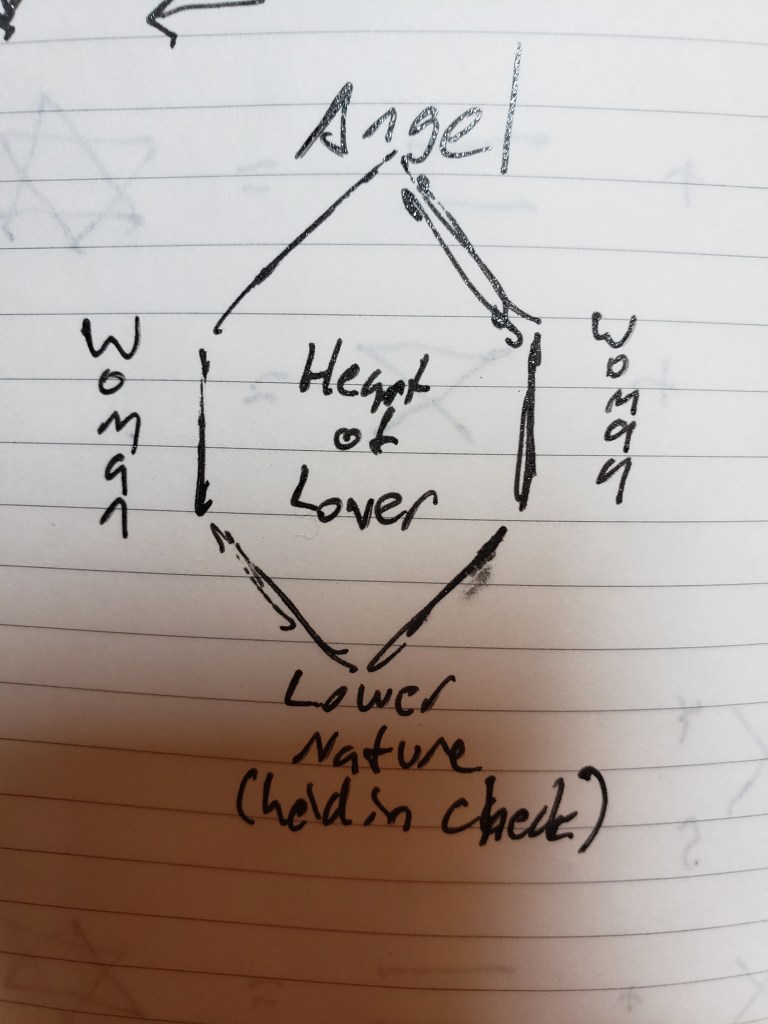 Angel
Woman
Heart
of
Lover
Woman
Lower
Nature
(held in check)